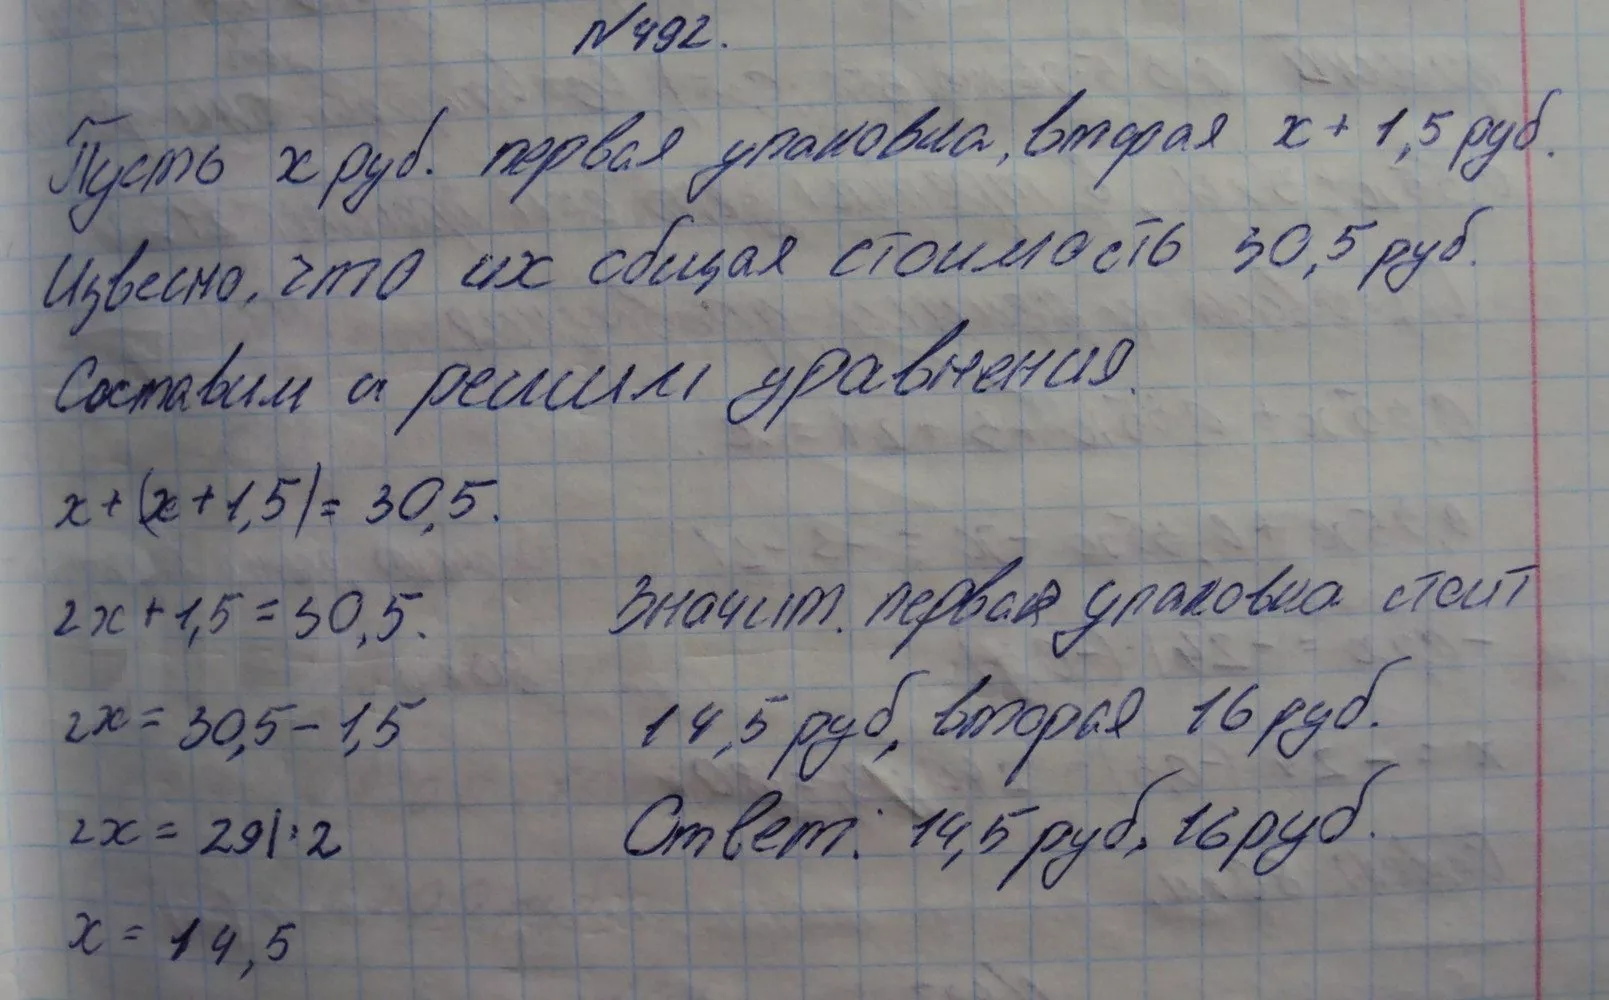 №492.
Пусть х руб. первая упаковка, вторая х + 1,5 руб.
Извесно, что их общая стоимость 30,5 руб.
Составим и решим уравнения.
х+(х+1,5)=30,5.
2х+1,5=30,5.
2х=30,5-1,5
2х=29|:2
х=14,5
Значит. первая упаковка стоит
14,5 руб, вторая 16 руб.
Ответ: 14,5 руб, 16 руб.